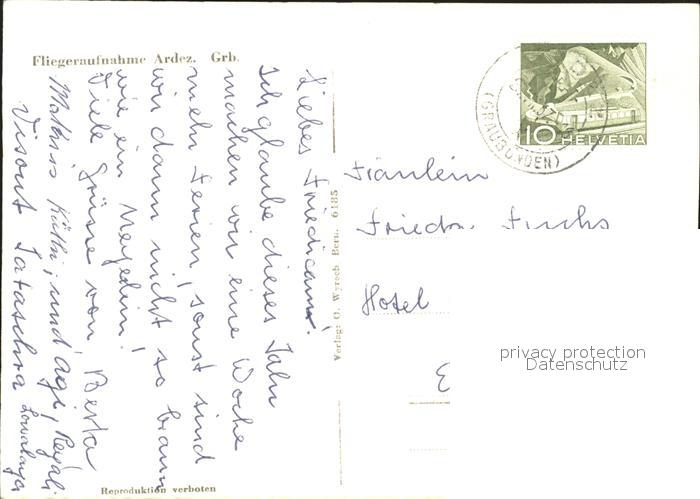 Fliegeraufnahme Ardez. Grb.
Liebes Friedicami!
Ich glaube dieses Jahr
machen wir eine Woche
mehr Ferien, sonst sind
wir dann nicht so braun
wie ein Negerlein!
Viele Grüsse von Berta
Mathis Käthi, und Agi,
Verlag: O. Wyrsch Bern. 6185
Reproduktion verboten
(GRAUBÜNDEN)
10 HELVETIA
Fräulein
Friedr. Fuchs
Hotel
E
privacy protection
Datenschutz